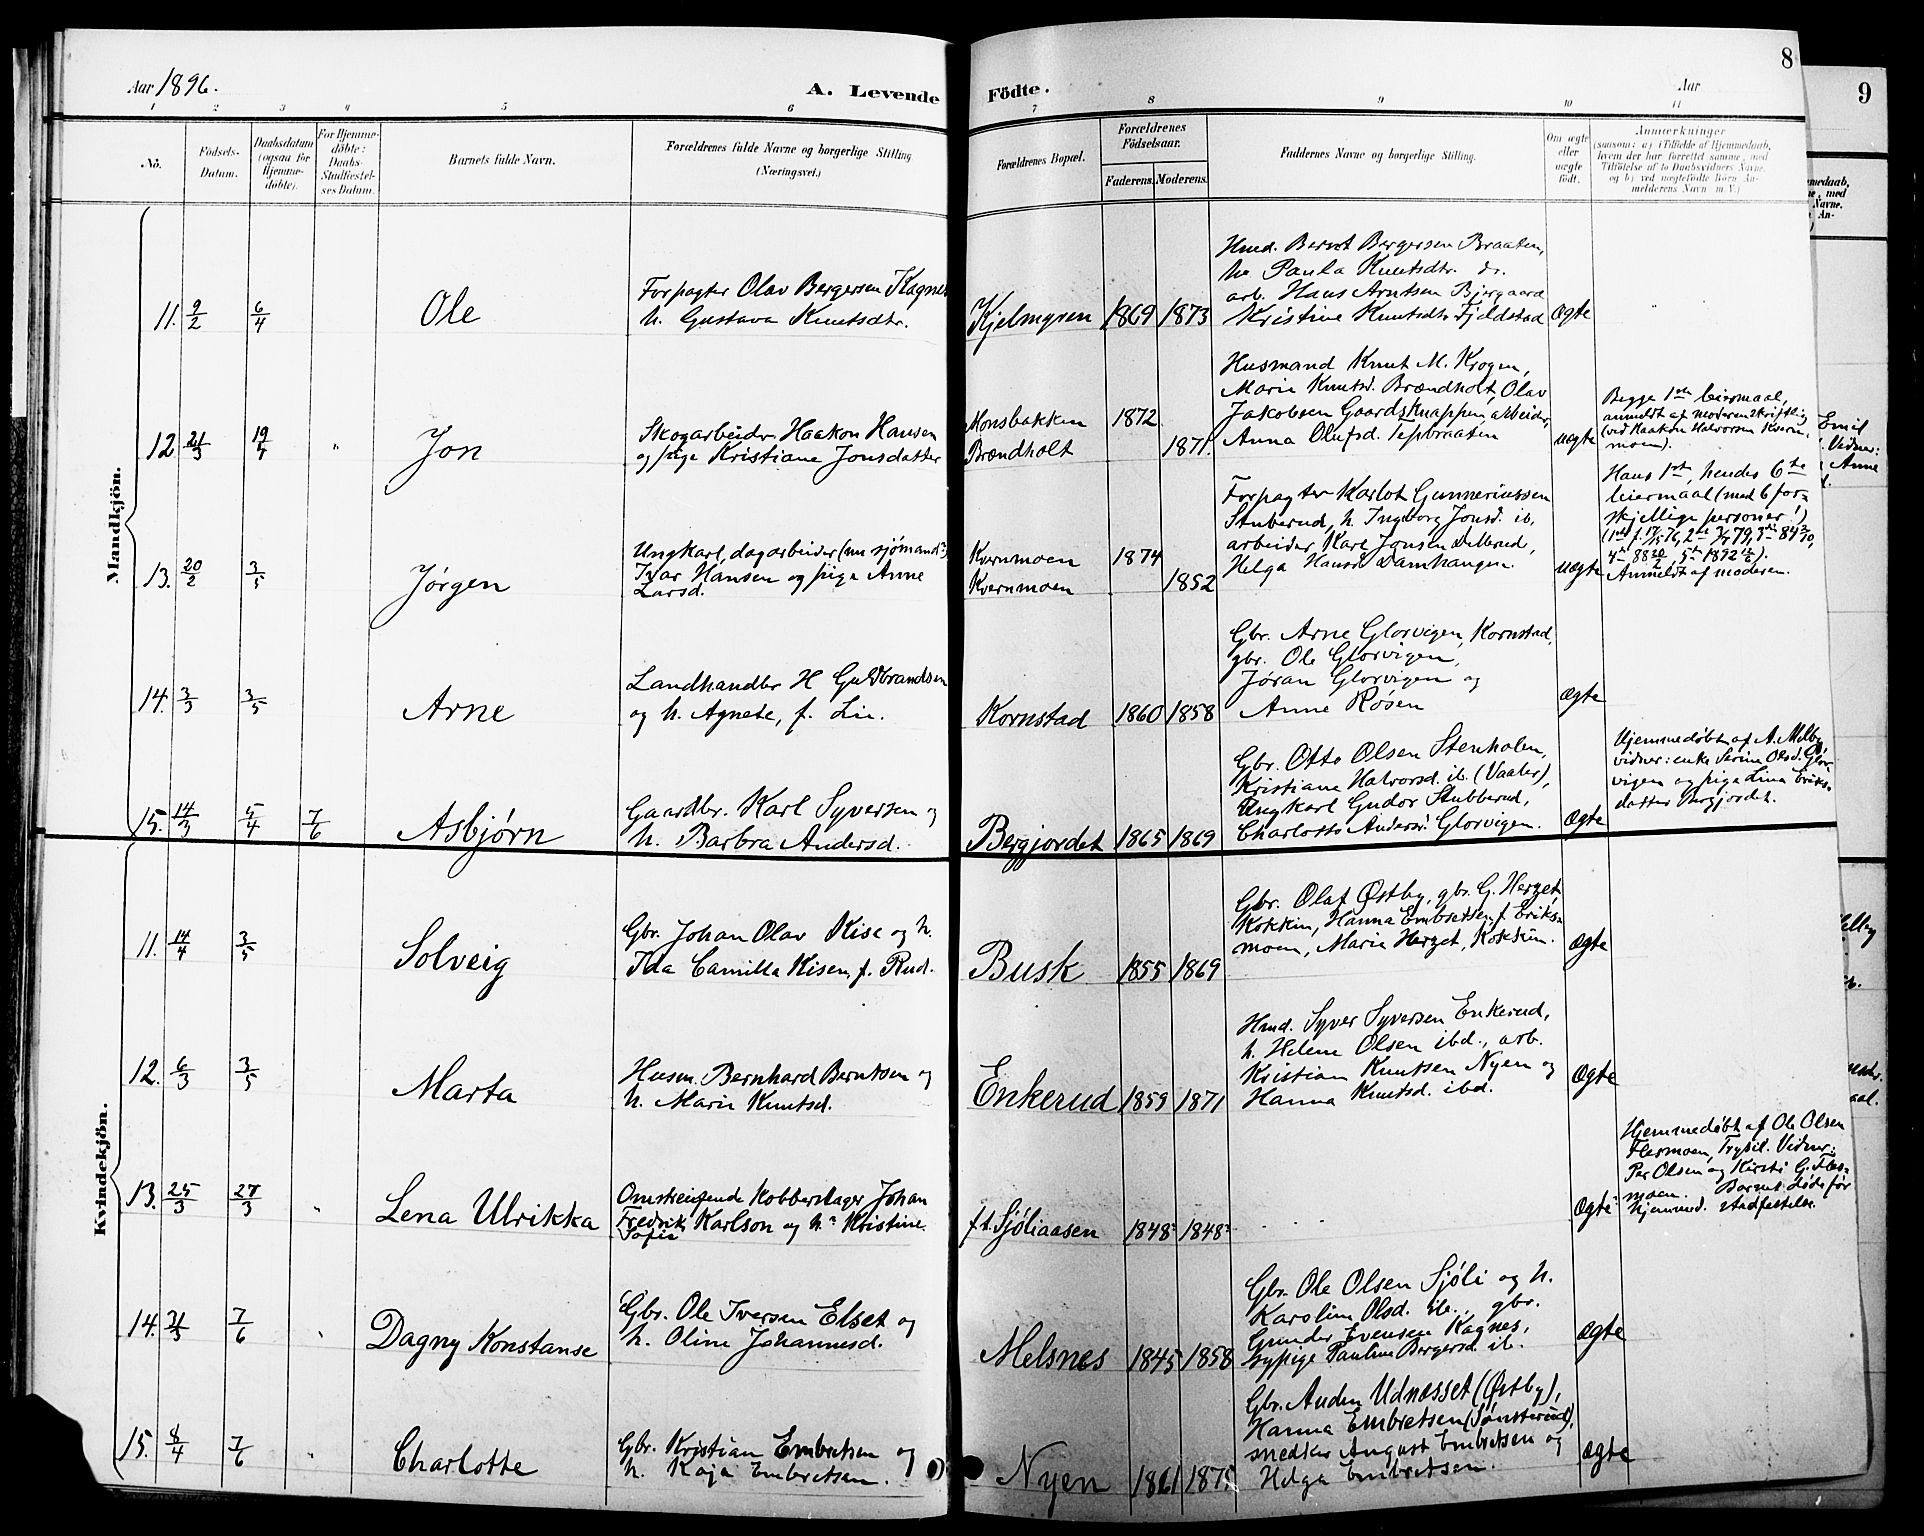 Aar 1896.
A. Levende
1 2 3 4 5 6
No.
Födsels-
Datum.
Daabsdatum
(ogsaa for
Hjemme-
döbte).
For Hjemme-
döbte:
Daabs-
Stadfæstel-
ses Datum.
Barnets fulde Navn.
Forældrenes fulde Navne og borgerlige Stilling
(Næringsvei.)
Födte.
Aar
8
7 8 9 10 11
Forældrenes Bopæl.
Forældrenes
Födselsaar.
Faderens. Moderens.
Faddernes Navne og borgerlige Stilling.
Om ægte
eller
uægte
født.
Anmærkninger
(saasom: a) i Tilfælde af Hjemmedaab,
hvem der har forrettet samme, med
Tilføielse af to Daabsvidners Navne,
og b) ved uægtefødte Börn An-
melderens Navn m. V.)
9
Mandkjön.
11. 9/2 6/4
Ole
Forpagter Olav Bergersen Kagnes
h. Gustava Knutsdtr.
Kjelmyren 1869 1873
Hmd. Bernt Bergersen Braaten,
h. Paula Knutsdtr. ib.
arb. Hans Arntsen Bjergaard
Kristine Knutsdtr Fjeldstad
Ægte
12 21/3 19/4 "
Jon
Skogarbeider Haakon Hansen
og pige Kristiane Jonsdatter
Monsbakken 1872
Brændholt 1871.
Husmand Knut M. Krogen,
Marie Knutsd. Brændholt, Olav
Jakobsen Gaardsknappen arbeider,
Anna Olufsd. Tepbraaten
uægte
Begge 1ste leiermaal,
anmeldt af moderen skriftlig
(ved Haakon Halvorsen Kvern-
moen).
13. 20/2 3/5
Jørgen
Ungkarl, dagarbeider (nu sjømand?)
Ivar Hansen og pige Anne
Larsd.
Kvernmoen 1874
Kvernmoen 1852
Forpagter Karlot Gunneriussen
Stuberud, h. Ingborg Jonsd. ib.
arbeider Karl Jonsen Dellerud,
Helga Hansd Damhaugen.
uægte
Hans 1ste, hendes 6te
leiermaal (med 6 for-
skjellige personer!)
Anmeldt af moderen.
14. 3/3 3/5
Arne
Landhandler H Guldbrandsen
og h. Agnete, f. Lie.
Kornstad 1860 1858
Gbr. Arne Glorvigen, Kornstad,
gbr. Ole Glorvigen,
Jøran Glorvigen og
Anne Røsen
Ægte
15. 14/3 5/4 7/6
Asbjørn
Gaardbr. Karl Syversen og
h. Barbra Andersd.
Bergjordet 1865 1869
Gbr. Otto Olsen Stenholen,
Kristiane Halvorsd. ib. (Vaaler),
Ungkarl Gudor Stubberud,
Charlotte Andersd. Glorvigen.
Ægte
Hjemmedøbt af A. Melby,
vidner: enke Serine Olsd. Glor-
vigen og pige Lina Eriks-
datter Bergjordet.
Kvindekjön.
11. 14/4 3/5
Solveig
Gbr. Johan Olav Kise og h.
Ida Camilla Kisen, f. Rud.
Busk 1855 1869
Gbr. Olaf Østby, gbr. G. Herzet,
Kokkin, Hanna Embretsen, f. Eriks-
moen, Marie Herzet, Kokkin.
Ægte
12. 6/3 3/5
Marta
Husm. Bernhard Berntsen og
h. Marie Knutsd.
Enkerud 1859 1871
Hmd. Syver Syversen Enkerud,
h. Helene Olsen ibd., arb.
Kristian Knutsen Nyen og
Hanna Knutsd. ibd.
Ægte
13. 25/3 27/3 "
Lena Ulrikka
Omstreifende Kobberslager Johan
Fredrik Karlson og h. Kristine
Sofie
f.t. Sjøliaasen 1848? 1848?
Ægte?
Hjemmedøbt af Ole Olsen
Flermoen, Trysil. Vidner:
Per Olsen og Kirsti G. Fler-
moen. Barnet døde før
hjemmed. stadfestelse.
14. 21/3 7/6 "
Dagny Konstanse
Gbr. Ole Iversen Elset og
h. Oline Johannesd.
Melsnes 1845 1858
Gbr. Ole Olsen Sjøli og h.
Karoline Olsd. ib., gbr.
Gunder Evensen Kagnes,
sypige Pauline Bergersd. ib.
Ægte
15. 8/4 7/6 "
Charlotte
Gbr. Kristian Embretsen og
h. Kaja Embretsen.
Nyen 1861 1875
Gbr. Anden Udnæsset (Østby),
Hanna Embretsen (Sønsterud),
snedker August Embretsen og
Helga Embretsen.
Ægte